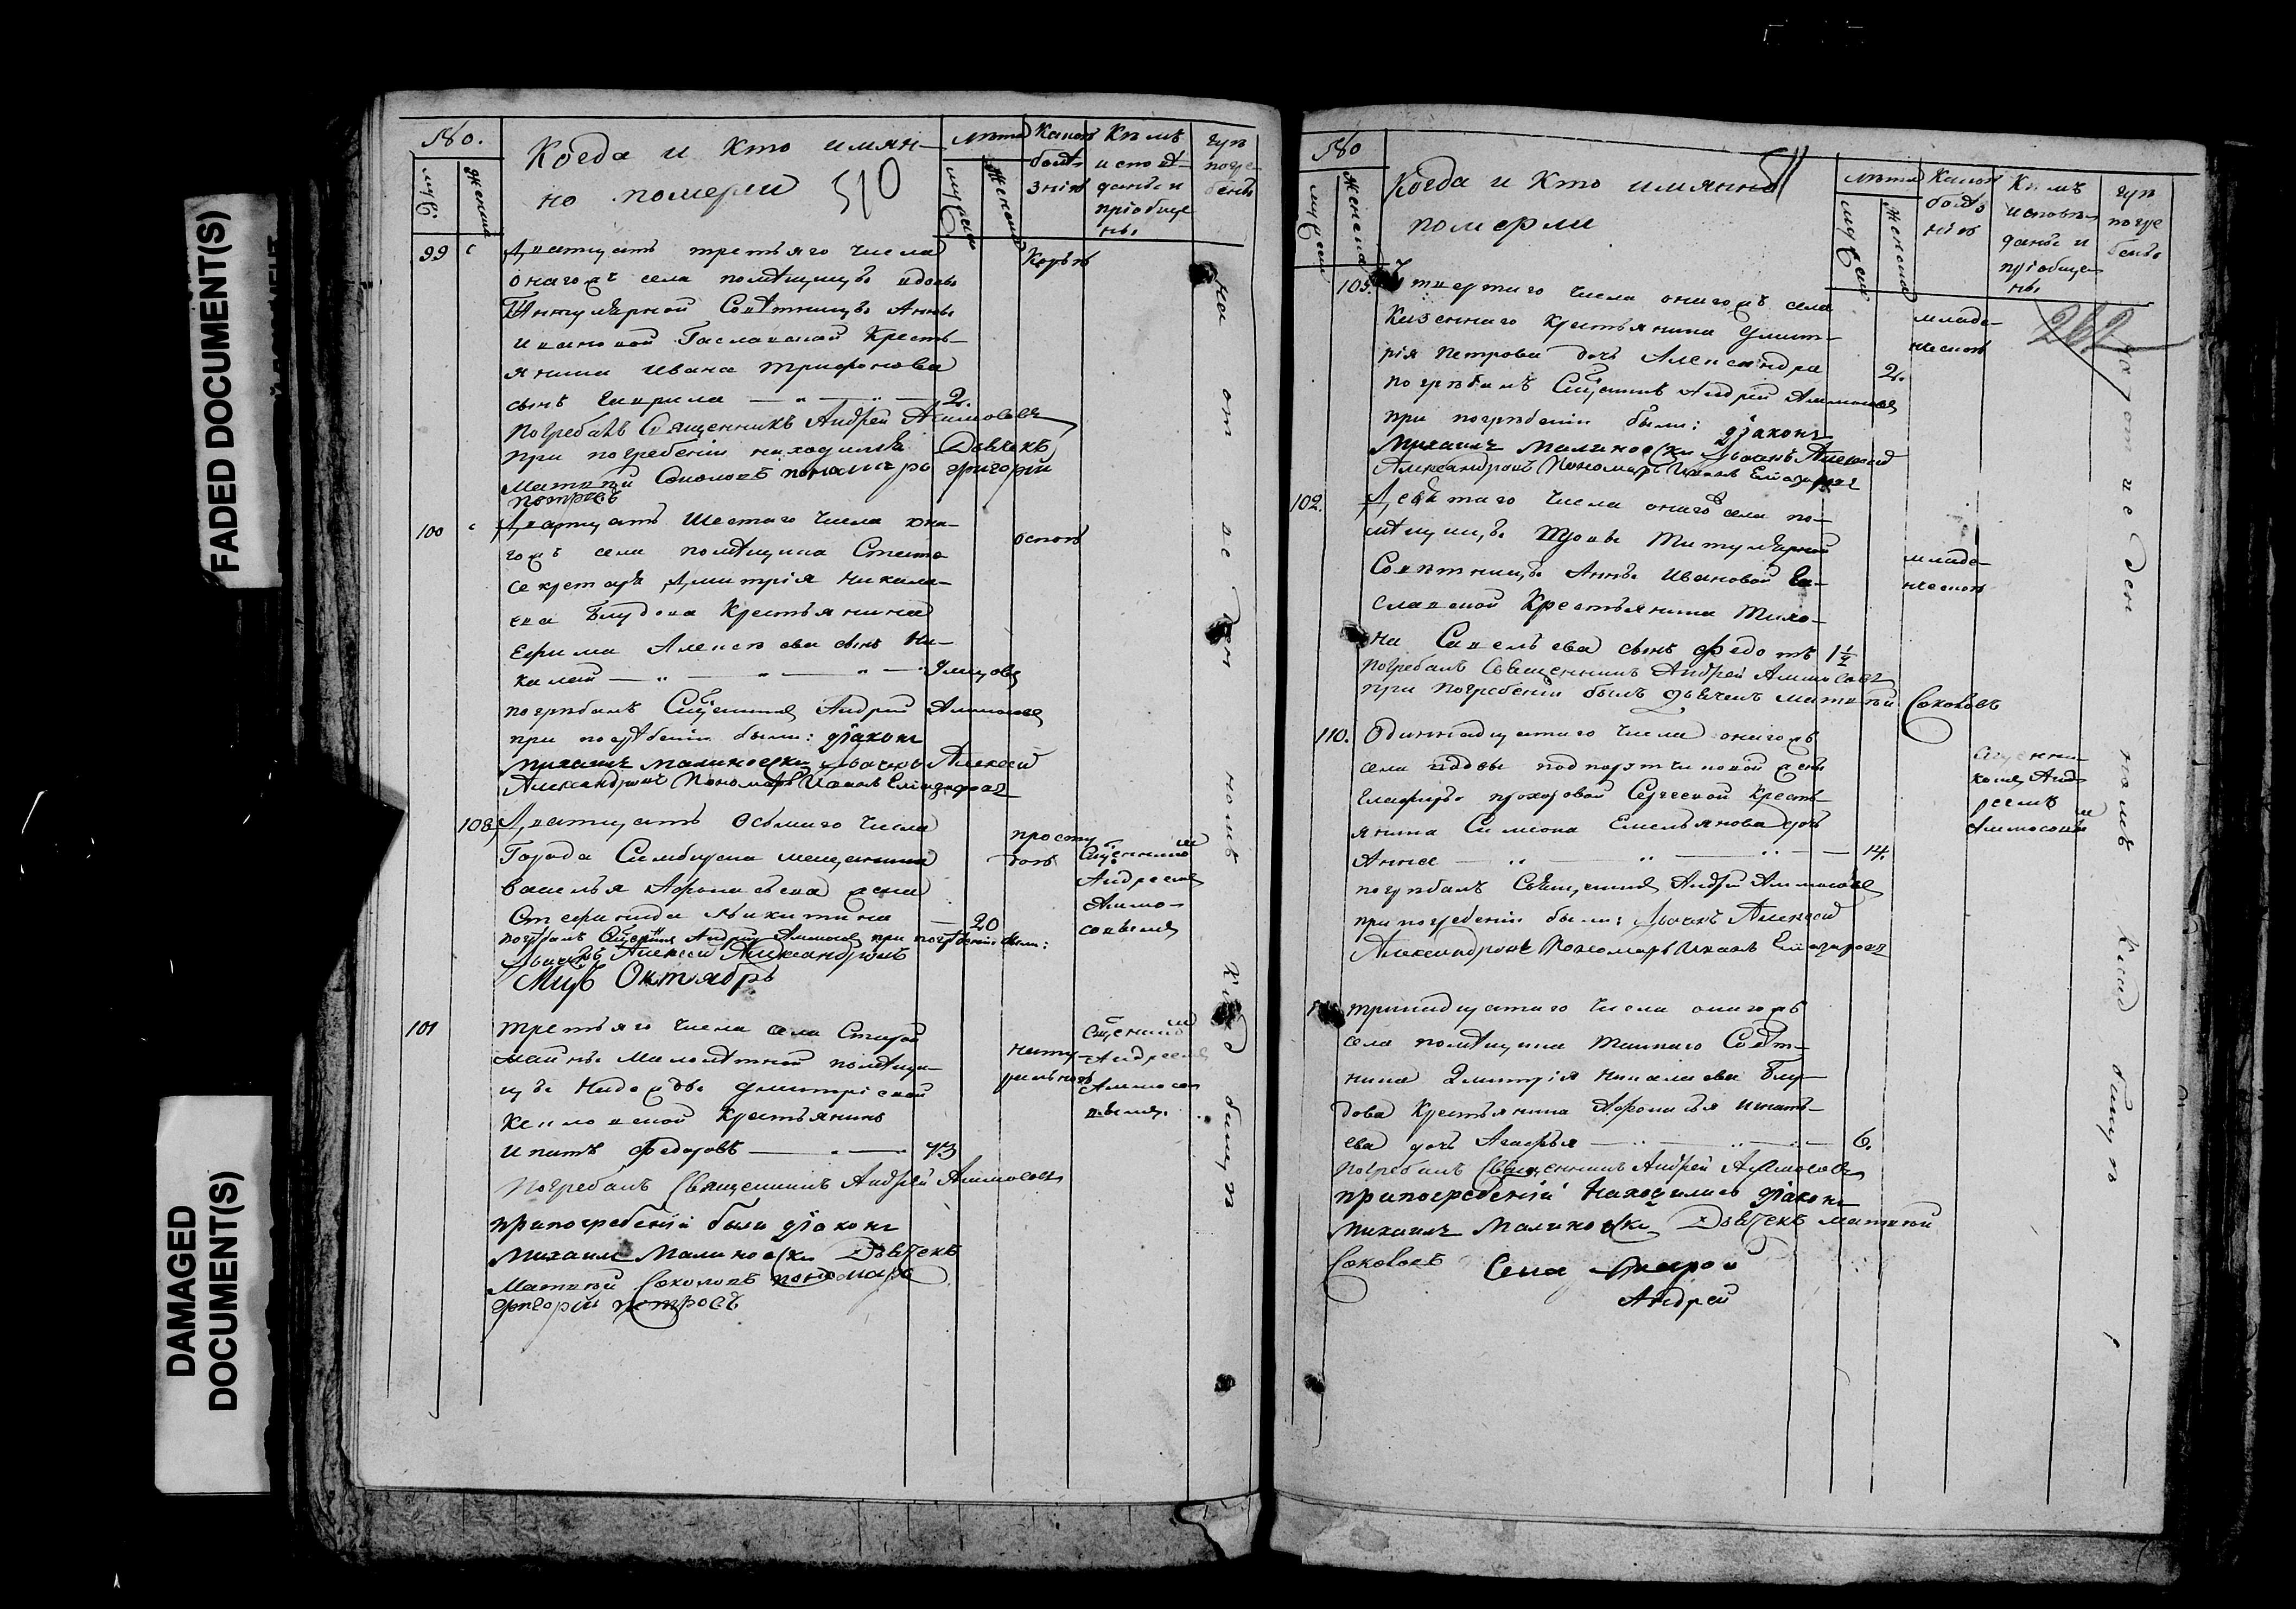 FADED DOCUMENT(S)
DAMAGED DOCUMENT(S)
No.
муж
женска
Когда и кто имян-
но померли
510
лѣта
муж
женска
Какою
болѣ-
знію
Кѣмъ
исповѣ-
даны и
пріобще
ны
гдѣ
погре-
бены
99
Дватцать третьяго числа
оногожъ села помѣщицы вдовы
Титулярной Совѣтницы Анны
Ивановой Гаславской Кресть-
янина Ивана Трифонова
сынъ Гаврила 2.
Корью
Погребалъ Священникъ Андрей Аммосовъ
при погребеніи находился Дьячекъ
Матвѣй Соколовъ пономарь Григорій
Петровъ
100
Дватцать шестаго числа она-
гожъ села помѣщика Статс
Секретаря Дмитрія Никола-
ева Блудова Крестьянина
Ефима Алексѣева сынъ Ни-
калай
оспою
погребалъ Сщенникъ Андрей Аммосовъ
при погребеніи были: діаконъ
Михаилъ Малиновски Дьячекъ Алексей
Александровъ Пономарь Иванъ Елиазаровъ
108
Дватцать осьмаго числа
Города Симбирска мещанина
Василья Афонасьева жена
Стефанида Никитина 20
просту-
дою
Сщенником
Андреемъ
Аммо-
совымъ
погребалъ Сщенникъ Андрей Аммосовъ при погребеніи были:
Дьячекъ Алексей Александровъ
Мцъ Октябрь
101
Третьяго числа села Старой
Майны Малолѣтной помѣщи-
цы Надежды Дмитріевой
Крестьянинъ
Игнатъ Федоровъ 73
нату-
ральною
Сщенником
Андреемъ
Аммосо-
вымъ.
Погребалъ Священникъ Андрей Аммосовъ
при погребеніи были діаконъ
Михаилъ Малиновски Дьячекъ
Матвѣй Соколовъ пономарь
Григорій Петровъ
на отведенномъ кладбищѣ
No
муж
женска
Когда и кто имянно
померли
511
лѣта
муж
женска
Какою
болѣ-
нію
Кѣмъ
исповѣ-
даны и
пріобще-
ны
гдѣ
погре
бены
262
109.
Четвертаго числа оногожъ села
Казеннаго крестьянина Дмит-
рія Петрова дочь Александра 2.
младе-
нческою
погребалъ Сщенникъ Андрей Аммосовъ
при погребеніи были: діаконъ
Михаилъ Малиновски Дьячекъ Алексей
Александровъ Пономарь Иванъ Елиазаровъ
102.
Десятаго числа оного села по-
мѣщицы вдовы Титулярной
Совѣтницы Анны Ивановой Га-
славской Крестьянина Тимо-
на Савельева сынъ Федотъ 1½
младе-
нческою
Погребалъ Священникъ Андрей Аммосовъ
при погребеніи былъ дьячекъ Матвѣй Соколовъ
110.
Одиннадцатаго числа оногожъ
села вдовы
Прохоровой Кресть-
янина Симеона Емельянова дочь
Анна 14.
Сщенни-
комъ Анд-
реемъ
Аммосовымъ
погребалъ Священникъ Андрей Аммосовъ
при погребеніи были: Дьячекъ Алексей
Александровъ Пономарь Иванъ Елиазаровъ
тринадцатаго числа оногожъ
села помѣщика Тайнаго Совѣт-
ника Дмитрія Николаева Блу-
дова Крестьянина Афонасья Игнать-
ева дочь Агафья 6.
Погребалъ Священникъ Андрей Аммосовъ
при погребеніи находились діаконъ
Михаилъ Малиновски Дьячекъ Матвѣй
Соколовъ
Села Старой
Андрей
на отведенномъ кладбищѣ